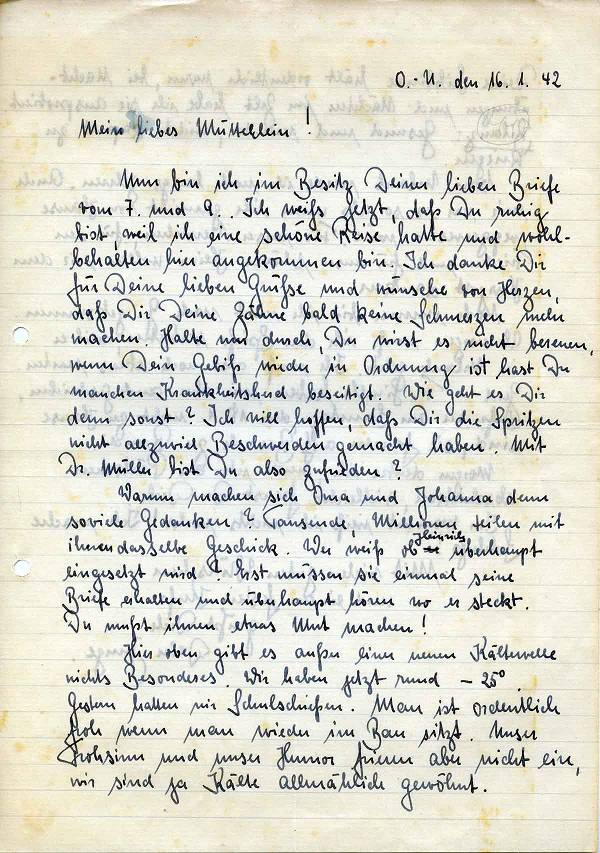 O.-U. den 16. 1. 42
Mein liebes Mütterlein!
Nun bin ich im Besitz Deiner lieben Briefe
vom 7. und 9.. Ich weiß jetzt, daß Du ruhig
bist, weil ich eine schöne Reise hatte und wohl-
behalten hier angekommen bin. Ich danke Dir
für Deine lieben Grüße und wünsche von Herzen,
daß Dir Deine Zähne bald keine Schmerzen mehr
machen. Halte nur durch, Du wirst es nicht bereuen,
wenn Dein Gebiß wieder in Ordnung ist hast Du
manchen Krankheitsherd beseitigt. Wie geht es Dir
denn sonst? Ich will hoffen, daß Dir die Spritzen
nicht allzuviel Beschwerden gemacht haben. Mit
Dr. Müller bist Du also zufrieden?
Warum machen sich Oma und Johanna denn
soviele Gedanken? Tausende, Millionen teilen mit
ihnen dasselbe Geschick. Wer weiß ob Heinrich überhaupt
eingesetzt wird? Erst müssen sie einmal seine
Briefe erhalten und überhaupt hören wo er steckt.
Du mußt ihnen etwas Mut machen!
Hier oben gibt es außer einer neuen Kältewelle
nichts Besonderes. Wir haben jetzt rund – 25°
Gestern hatten wir Schulschießen. Man ist ordentlich
froh wenn man wieder im Bau sitzt. Unser
Frohsinn und unser Humor frieren aber nicht ein,
wir sind ja Kälte allmählich gewöhnt.